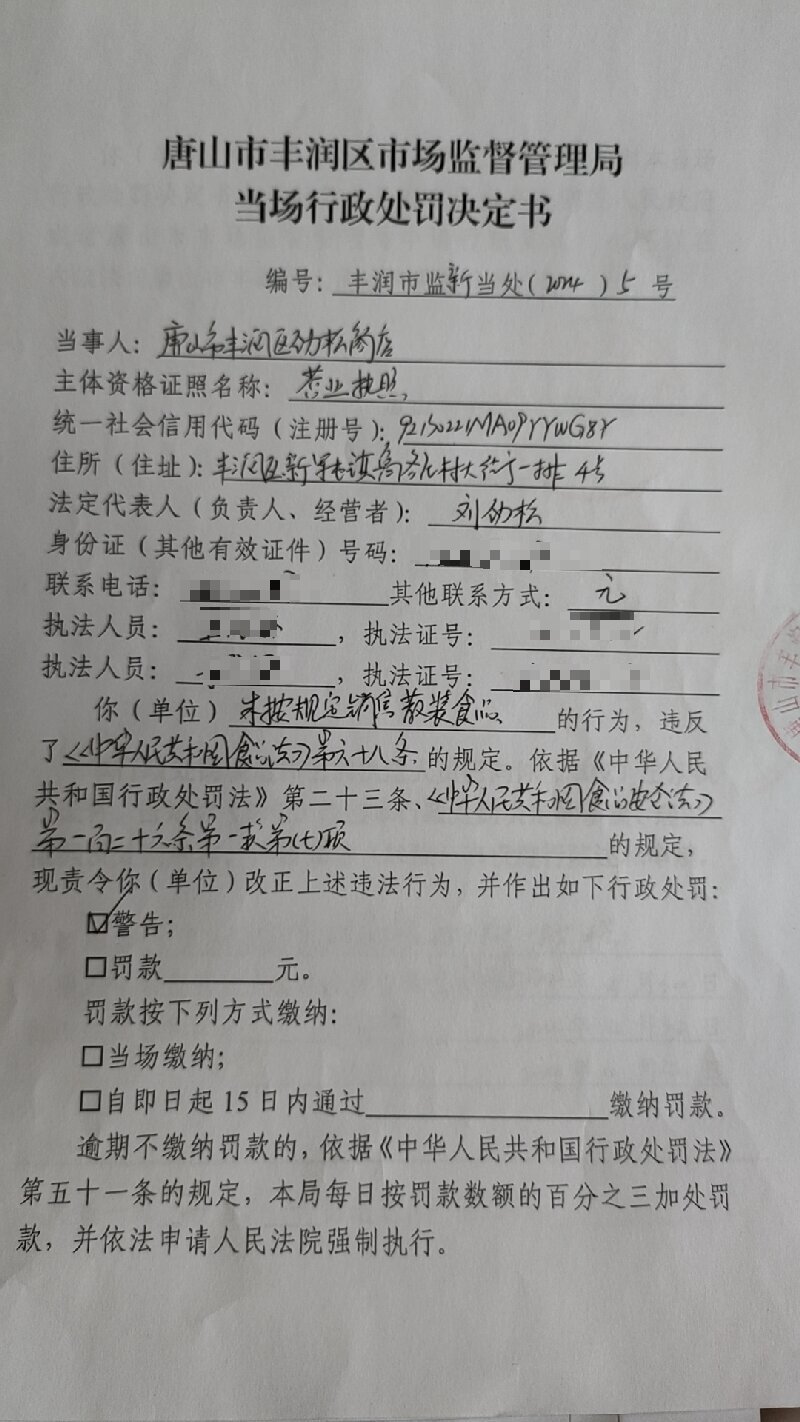 唐山市丰润区市场监督管理局
当场行政处罚决定书
编号：丰润市监新当处(2024)5号
当事人：唐山市丰润区劲松商店
主体资格证照名称：营业执照
统一社会信用代码（注册号）：92130221MA09YYWG8Y
住所（住址）：丰润区新军屯镇 村大街一排4号
法定代表人（负责人、经营者）：刘劲松
身份证（其他有效证件）号码：
联系电话： 其他联系方式：无
执法人员： ，执法证号：
执法人员： ，执法证号：
你（单位）未按规定销售散装食品的行为，违反
了《中华人民共和国食品法》第六十八条的规定。依据《中华人民
共和国行政处罚法》第二十三条、《中华人民共和国食品安全法》
第一百二十六条第一款第(七)项的规定，
现责令你（单位）改正上述违法行为，并作出如下行政处罚：
☑警告；
□罚款 元。
罚款按下列方式缴纳：
□当场缴纳；
□自即日起15日内通过 缴纳罚款。
逾期不缴纳罚款的，依据《中华人民共和国行政处罚法》
第五十一条的规定，本局每日按罚款数额的百分之三加处罚
款，并依法申请人民法院强制执行。